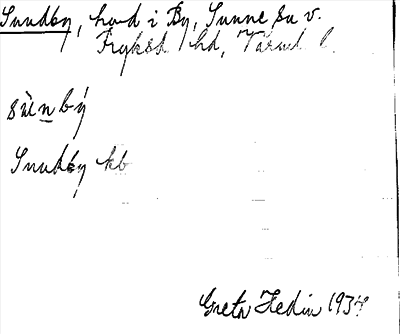 Sundby, hmd i By, Sunne sn v.
Fryksd hd, Värml l.
sùnbý
Sundby kb
Greta Hedin 1934